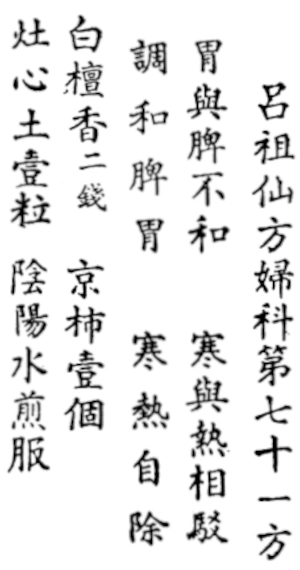 呂祖仙方婦科第七十一方
胃與脾不和 寒與熱相駁
調和脾胃 寒熱自除
白檀香二錢 京柿壹個
灶心土壹粒 陰陽水煎服